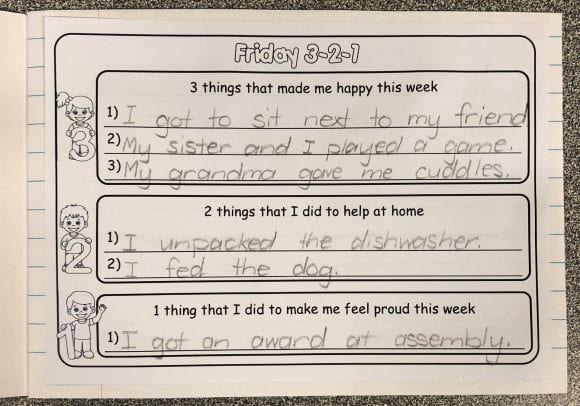 Friday 3-2-1
3 things that made me happy this week
1) I got to sit next to my friend
2) My sister and I played a game.
3) My grandma gave me cuddles.
2 things that I did to help at home
1) I unpacked the dishwasher.
2) I fed the dog.
1 thing that I did to make me feel proud this week
1) I got an award at assembly.
3
2
1